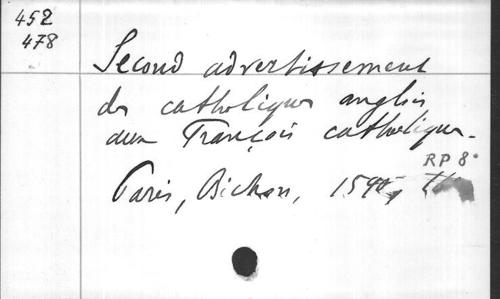 452
478
Second advertissement
des catholiques anglois
aux François catholiques.
RP 8°
Paris, Bichon, 1590,